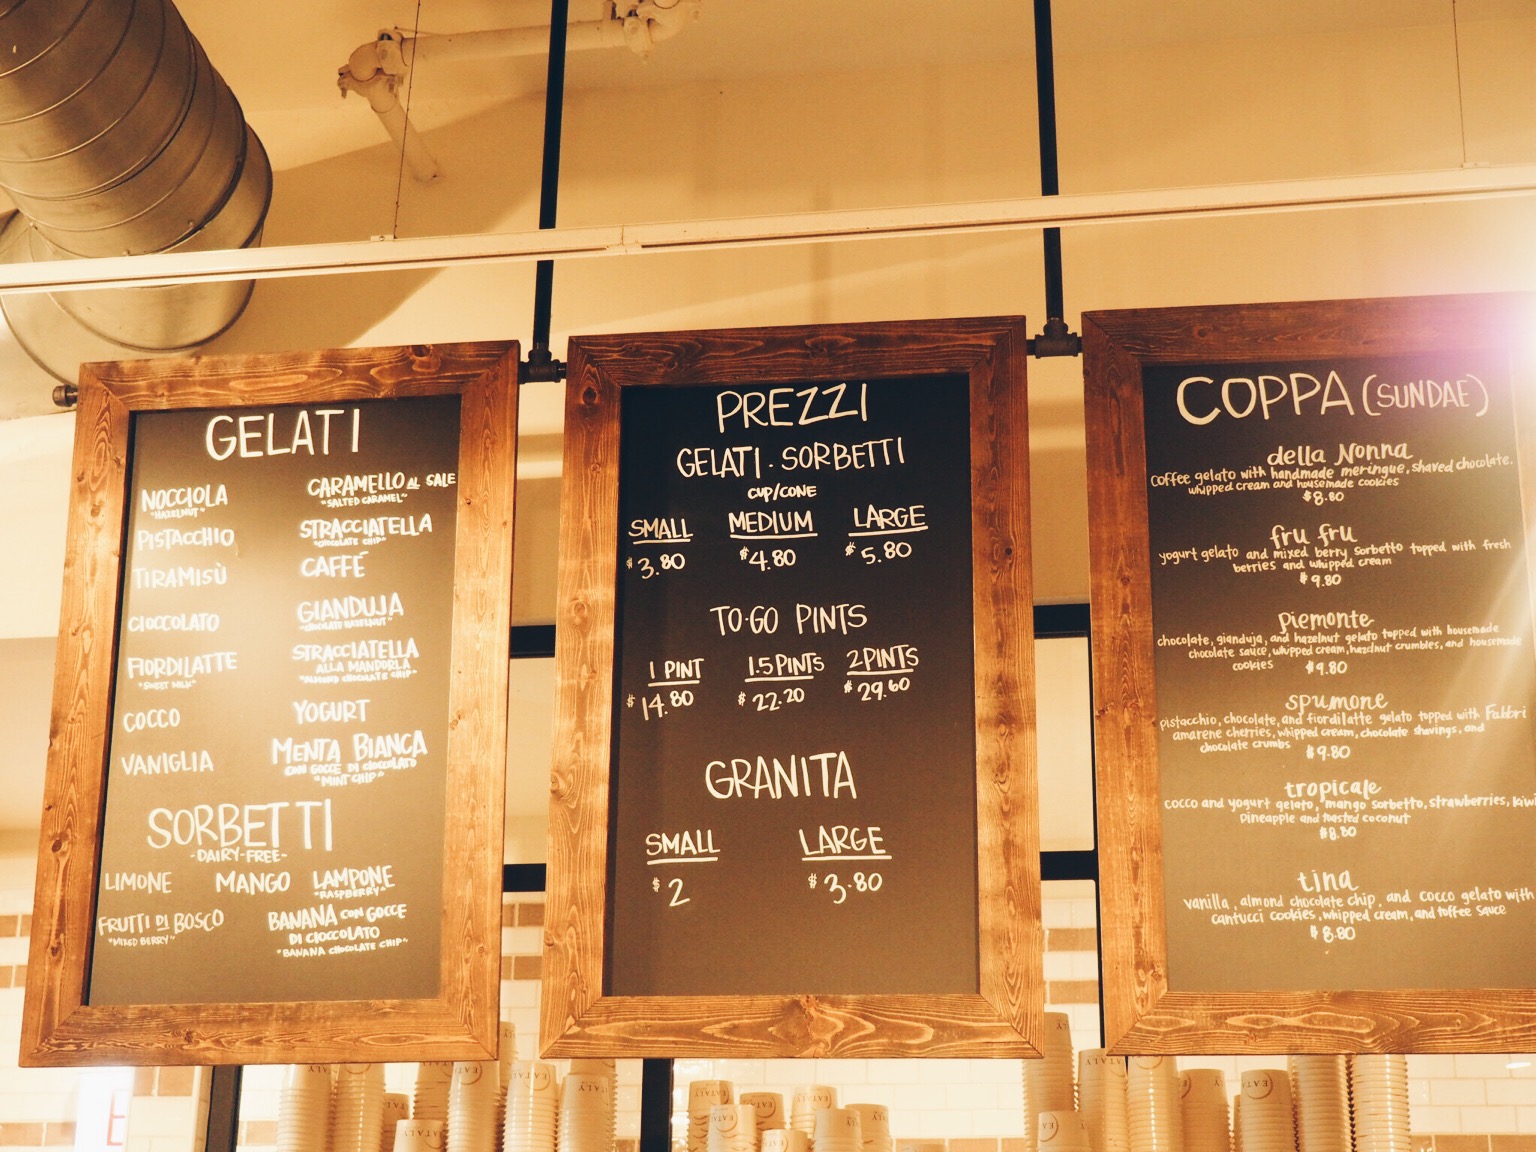 GELATI
NOCCIOLA
"HAZELNUT"
PISTACCHIO
TIRAMISÙ
CIOCCOLATO
FIORDILATTE
"SWEET MILK"
COCCO
VANIGLIA
CARAMELLO AL SALE
"SALTED CARAMEL"
STRACCIATELLA
"CHOCOLATE CHIP"
CAFFÉ
GIANDUJA
"CHOCOLATE HAZELNUT"
STRACCIATELLA
ALLA MANDORLA
"ALMOND CHOCOLATE CHIP"
YOGURT
MENTA BIANCA
CON GOCCE DI CIOCCOLATO
"MINT CHIP"
SORBETTI
-DAIRY-FREE-
LIMONE MANGO LAMPONE
"RASPBERRY"
FRUTTI DI BOSCO
"MIXED BERRY"
BANANA CON GOCCE
DI CIOCCOLATO
"BANANA CHOCOLATE CHIP"
PREZZI
GELATI · SORBETTI
CUP/CONE
SMALL MEDIUM LARGE
$3.80 $4.80 $5.80
TO·GO PINTS
1 PINT 1.5 PINTS 2 PINTS
$14.80 $22.20 $29.60
GRANITA
SMALL LARGE
$2 $3.80
COPPA (SUNDAE)
della Nonna
coffee gelato with handmade meringue, shaved chocolate,
whipped cream and housemade cookies
$8.80
fru fru
yogurt gelato and mixed berry sorbetto topped with fresh
berries and whipped cream
$9.80
Piemonte
chocolate, gianduja, and hazelnut gelato topped with housemade
chocolate sauce, whipped cream, hazelnut crumbles, and housemade
cookies $9.80
spumone
pistacchio, chocolate, and fiordilatte gelato topped with Fabbri
amarene cherries, whipped cream, chocolate shavings, and
chocolate crumbs $9.80
tropicale
cocco and yogurt gelato, mango sorbetto, strawberries, kiwi
pineapple and toasted coconut
$8.80
tina
vanilla, almond chocolate chip, and cocco gelato with
cantucci cookies, whipped cream, and toffee sauce
$8.80
EATALY
EATALY
EATALY